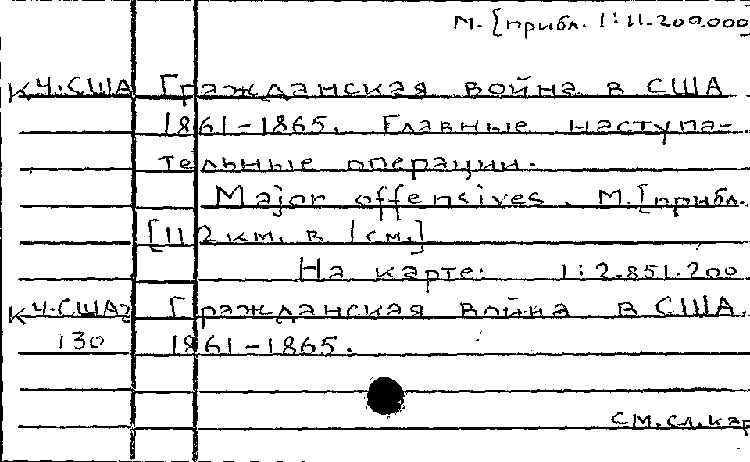 М. [прибл. 1:11.200.000]
КЧ.США Гражданская война в США
1861-1865. Главные наступа-
тельные операции.
Major offensives. М.[прибл.
[112 км. в 1 см.]
На карте: 1:2.851.200
КЧ.США2 Гражданская война в США.
130 1861-1865.
см.сл.кар